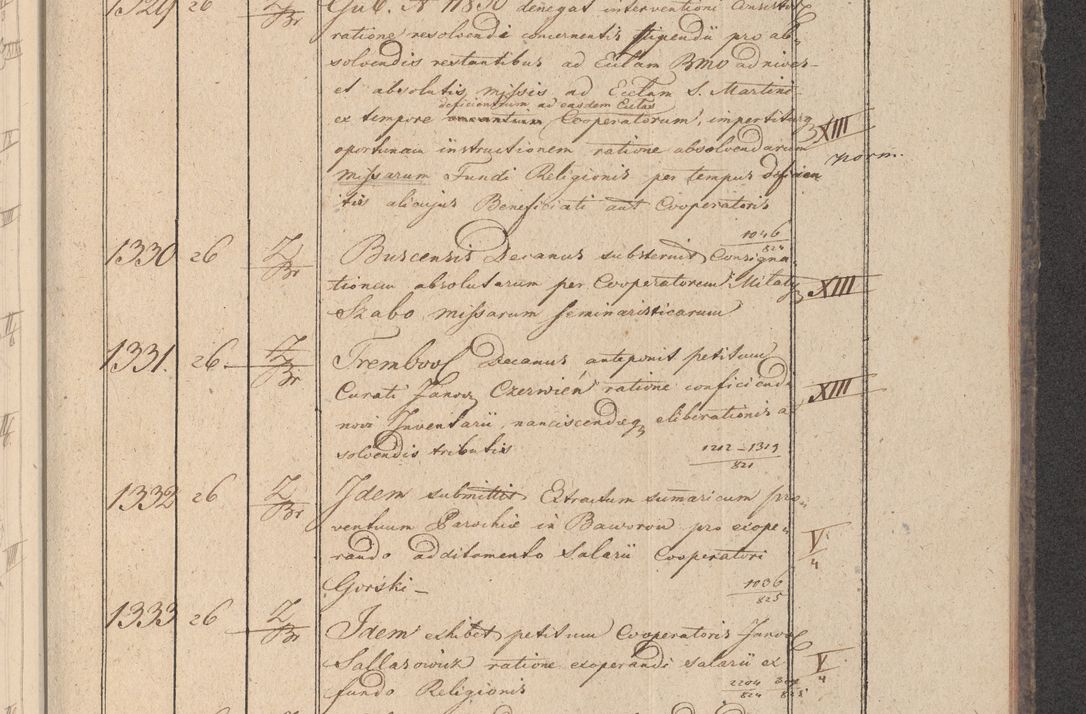 1329 26 Z/Br Gub. N 11830 denegat interventioni Consist
ratione resolvendi concernentis stipendii pro ab=
solvendis restantibus ad Eccl͠am BMV ad nives
et absolutis missis ad Eccl͠am S. Martini
deficientium ad easdem Eccl͠as
ex tempore Cooperatorum, impertiturq XIII
oportunam instructionem ratione absolvendarum norm.
missarum Fundi Religionis per tempus deficien
tis alicujus Beneficiati aut Cooperatoris
1046/824
1330 26 Z/Br Buscensis Decanus substernit Consigna
tionem absolutarum per Cooperatorem XIII
Szabo missarum seminaristicarum
1331. 26 Z/Br Trembovl Decanus anteponit petitum
Curati Janov Czerwień ratione conficiendi XIII
novi Inventarii, nanciscendæq eliberationis a
solvendis tributis 1212 – 1319/821
1332 26 Z/Br Idem submittit Extractum sumaricum pro=
ventuum Parochiæ in Baworow pro exope= V/4
rando additamento Salarii Cooperatori
Gorski – 1036/825
1333 26 Z/Br Idem exhibet petitum Cooperatoris Janov
ratione exoperandi salarii ex V/4
fundo Religionis 2204/824